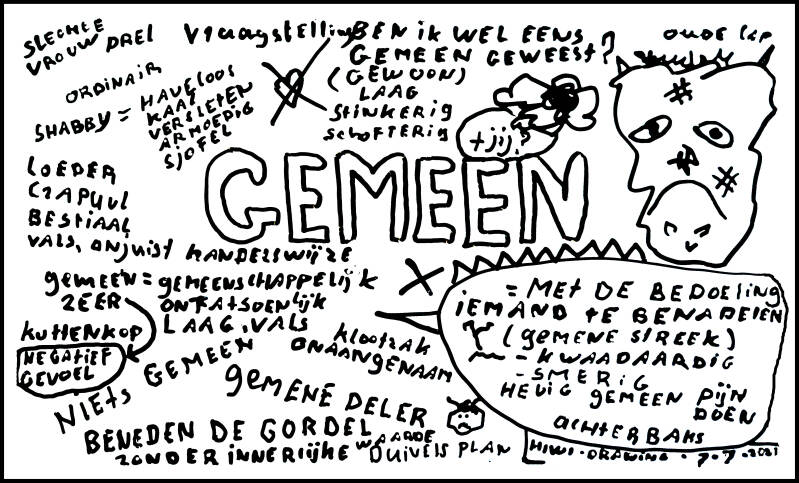 SLECHTE
VROUW DREL
ORDINAIR
SHABBY = HAVELOOS
KAAL
VERSLETEN
ARMOEDIG
SJOFEL
Vraagstelling
BEN iK WEL EENS
GEMEEN GEWEEST?
(GEWOON)
LAAG
STiNKERiG
SCHOFTERiG
+jij?
GEMEEN
LOEDER
CRAPUUL
BESTIAAL
VALS, ONJUIST HANDELSWijZE
gEMEEN = gEMEENSCHAPPELijK
ZEER
ONFATSOENLijK
LAAG, VALS
KUTTENKOP
NEGATiEF
GEVOEL
NIETS GEMEEN
KLOOTZAK
ONAANGENAAM
gEMENE DELER
BENEDEN DE GORDEL
ZONDER INNERLijKE WAARDE
DUiVELS PLAN
= MET DE BEDOELING
IEMAND TE BENADELEN
(gEMENE STREEK)
- KWAADAARDIG
- SMERiG
HEViG GEMEEN PijN
DOEN
ACHTERBAKS
HIWI-DRAWING - 7-7-2021